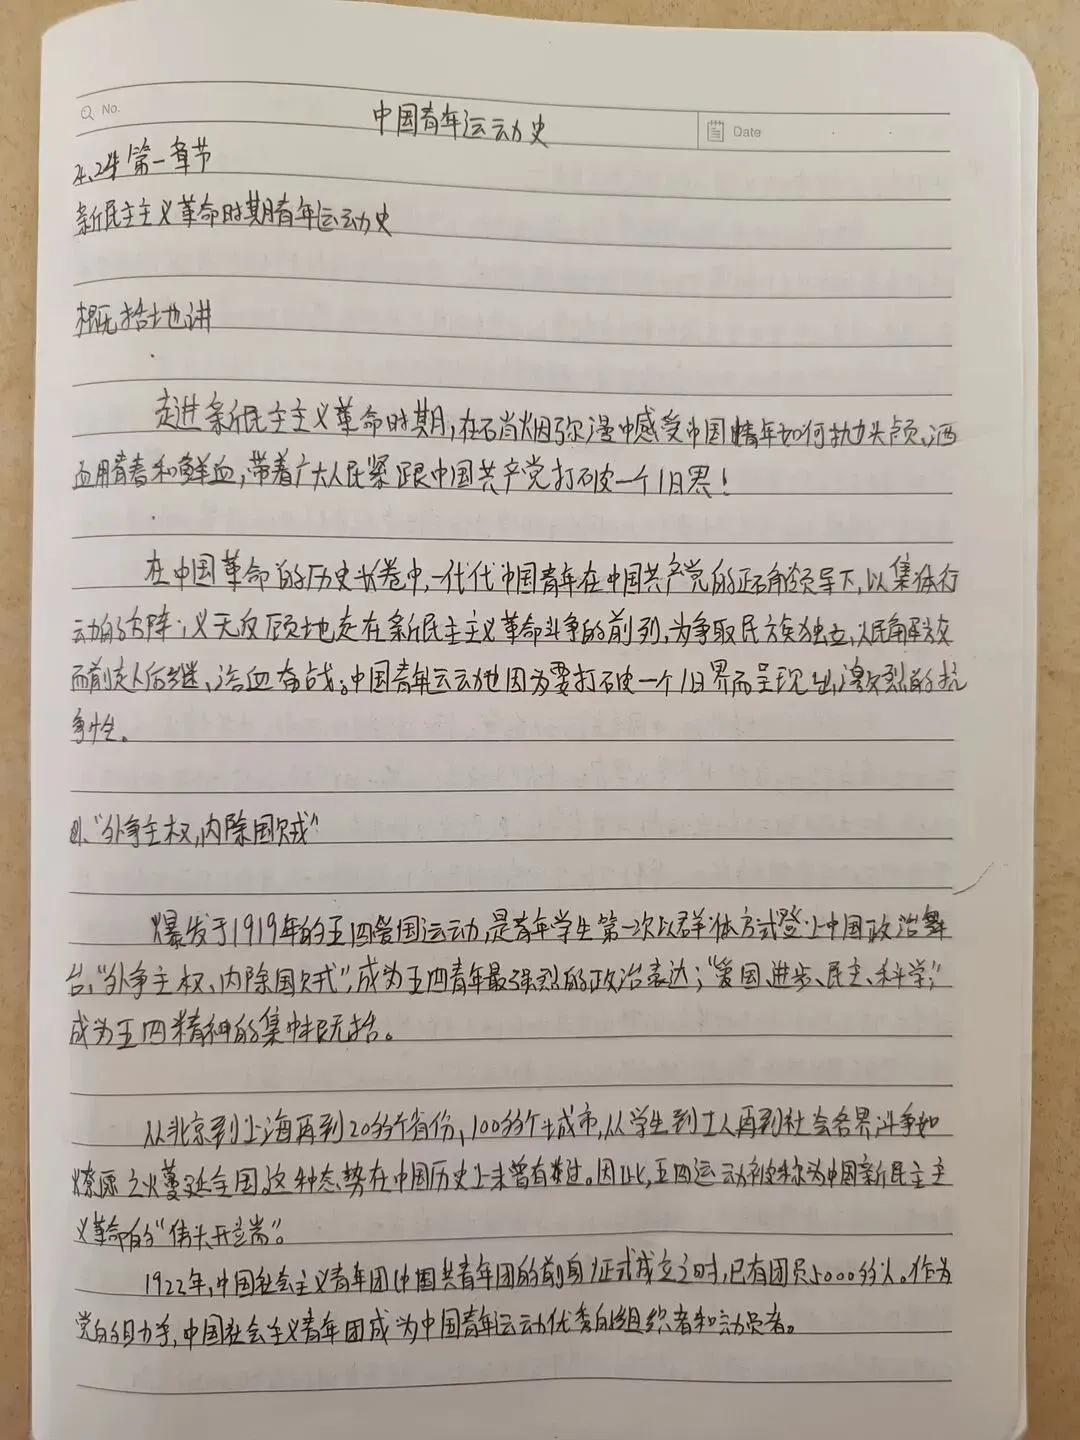 No.
中国青年运动史
Date
4.24 第一章节
新民主主义革命时期青年运动史
概括地讲
走进新民主主义革命时期,在硝烟弥漫中感受中国青年如何抛头颅,洒
血用青春和鲜血,带着广大人民紧跟中国共产党打破一个旧界!
在中国革命的历史长卷中,一代代中国青年在中国共产党的正确领导下,以集体行
动的方阵,义无反顾地走在新民主主义革命斗争的前列,为争取民族独立,人民解放
而前赴后继、浴血奋战。中国青年运动也因为要打破一个旧界而呈现出激烈的抗
争性。
1、"外争主权,内除国贼"
爆发于1919年的五四爱国运动,是青年学生第一次以群体方式登上中国政治舞
台,"外争主权、内除国贼",成为五四青年最强烈的政治表达;"爱国、进步、民主、科学"
成为五四精神的集中概括。
从北京到上海再到20多个省份,100多个城市,从学生到工人再到社会各界斗争如
燎原之火蔓延全国,这种态势在中国历史上未曾有过。因此,五四运动被称为中国新民主主
义革命的"伟大开端"。
1922年,中国社会主义青年团(中国共青年团的前身)正式成立之时,已有团员5000多人。作为
党的助手,中国社会主义青年团成为中国青年运动优秀的组织者和动员者。